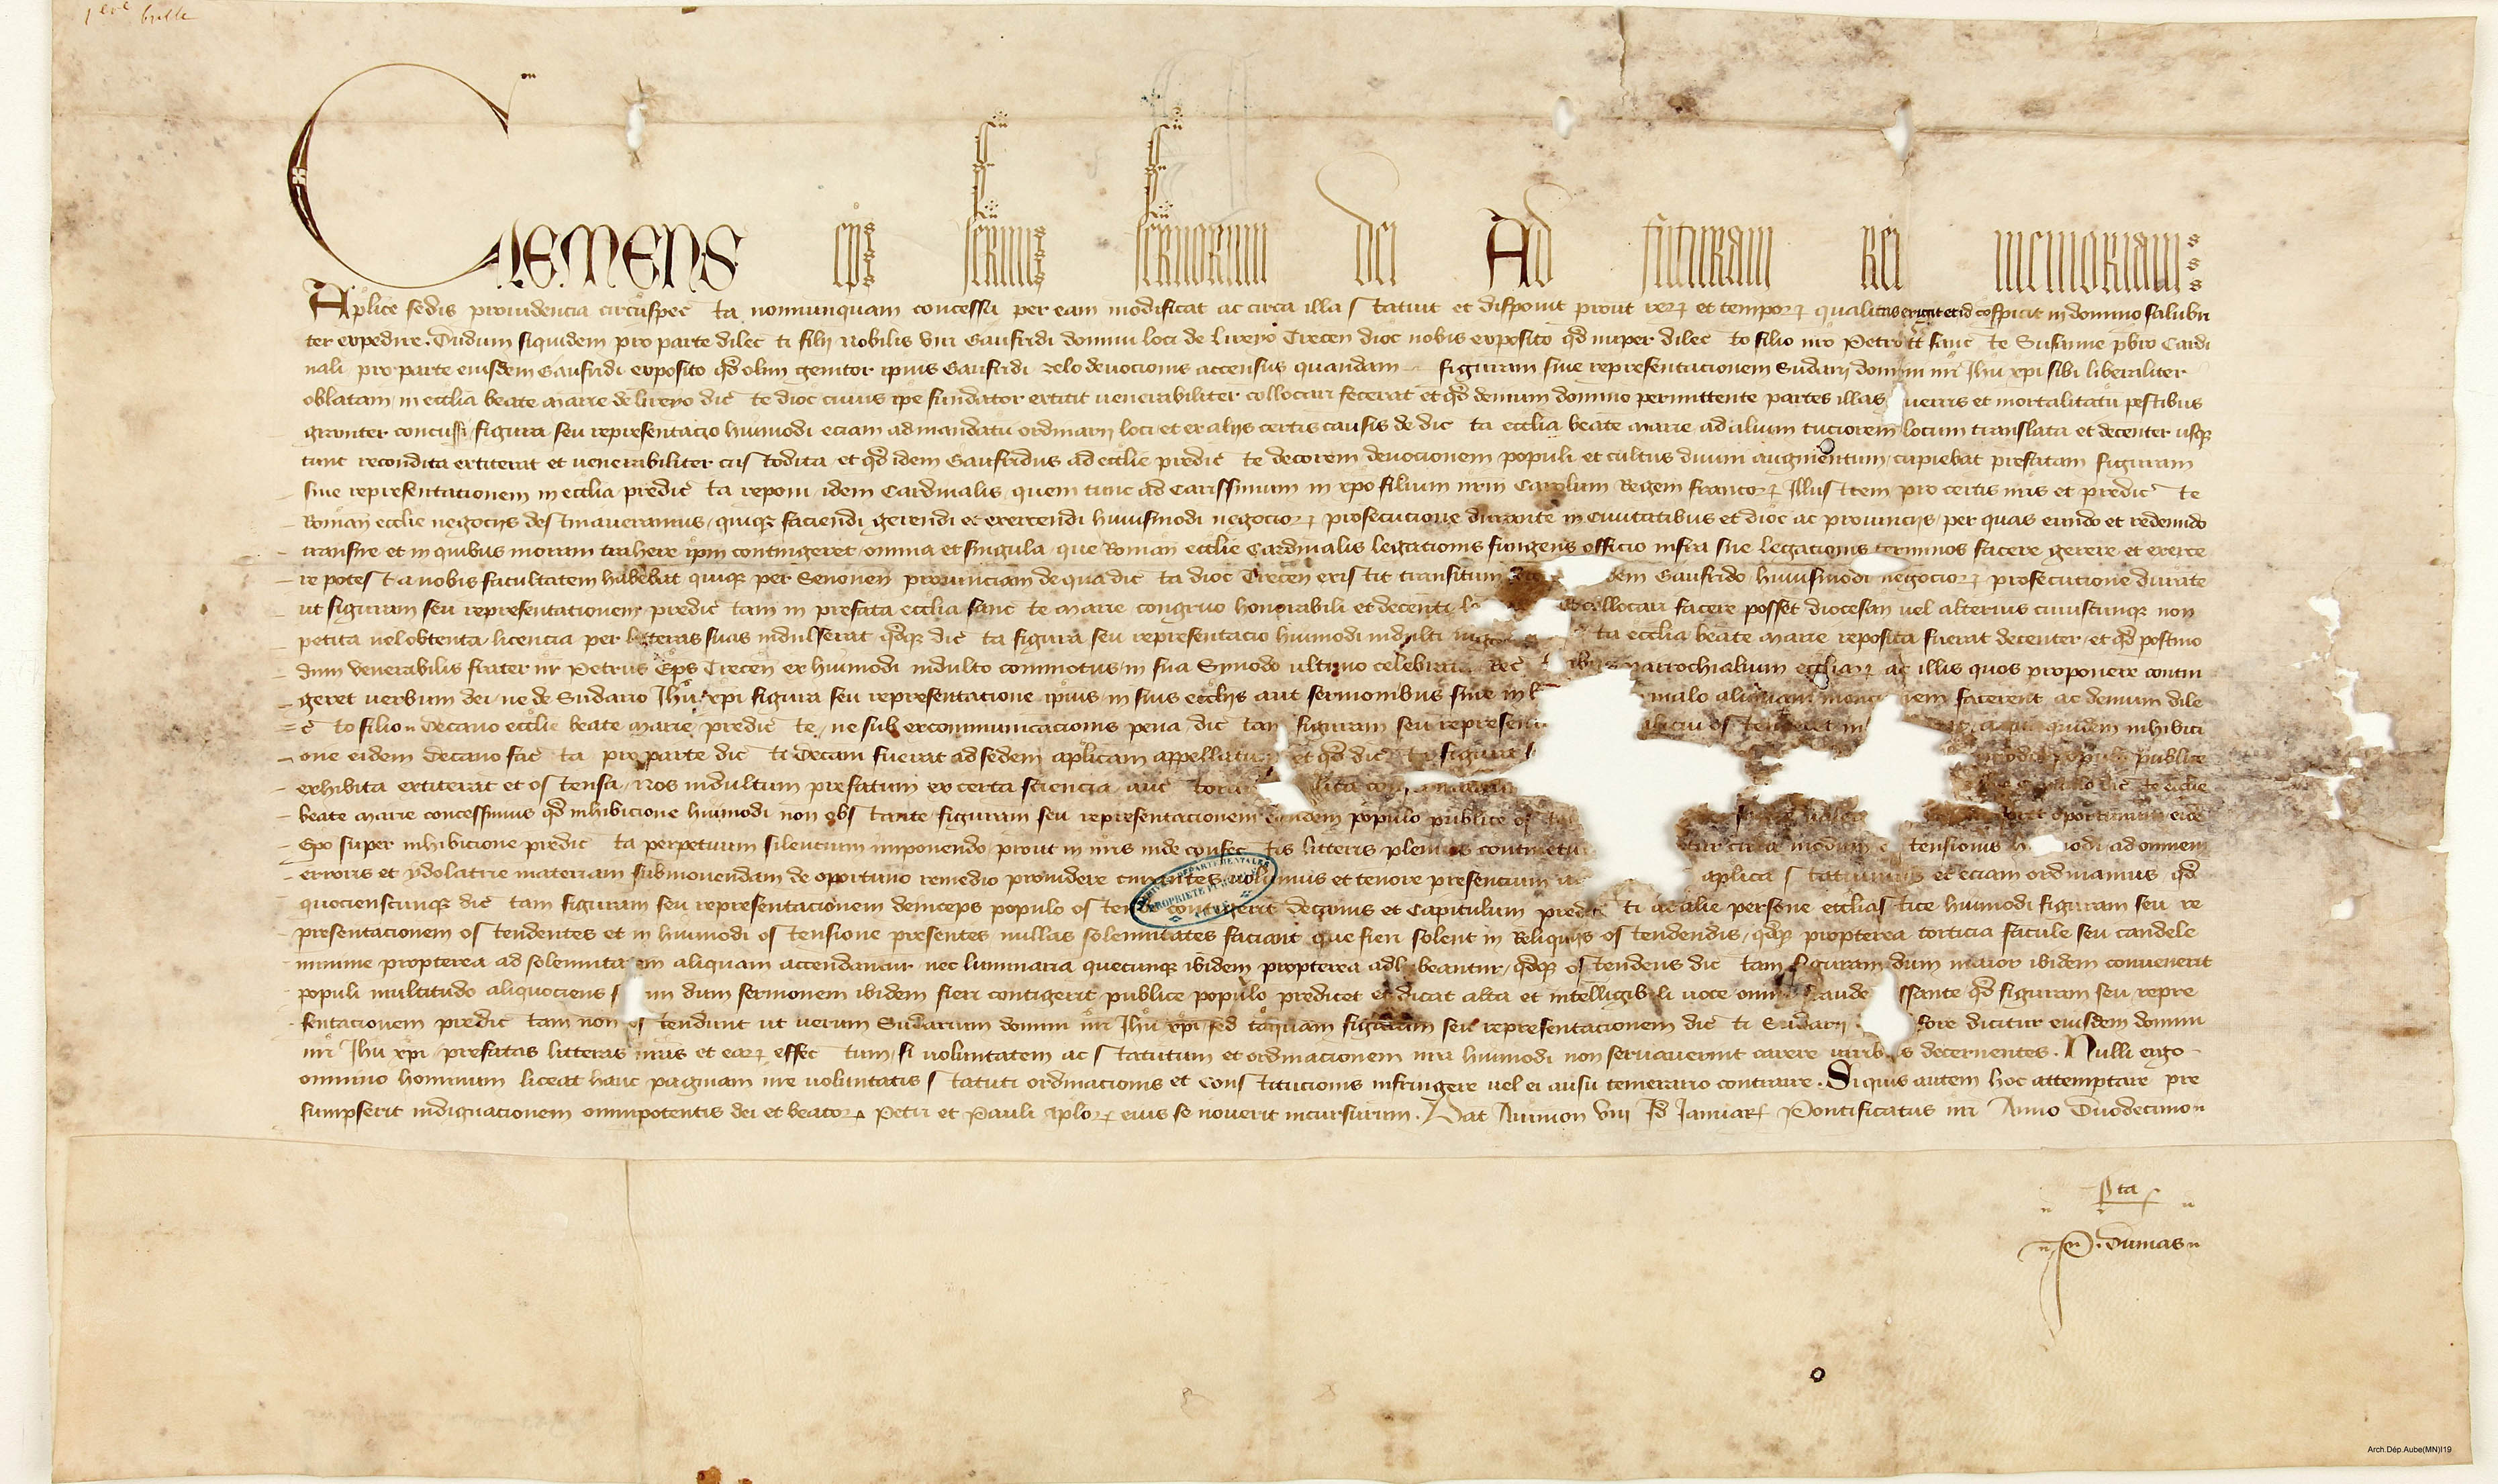 1ere bulle
Clemens eps servus servorum dei Ad futuram Rei memoriam
Aplice sedis providencia circuspecta nonnunquam concessa per eam modificat ac circa illa statuit et disponit prout rerum et temporum qualitas exigit et id cospicit in domino salubri
ter expedire. Dudum siquidem pro parte dilecti filii Nobilis viri Gaufridi domini loci de Lireyo Trecen dioc nobis exposito qd nuper dilecto filio nro Petro tt sancte Susanne pbro Cardi
nali pro parte eiusdem Gaufridi exposito qd olim genitor ipius Gaufridi zelo devocionis accensus quandam figuram sive representationem Sudarii domini nri Jhu xpi sibi liberaliter
oblatam in ecclia beate Marie de lireyo dicte dioc cuius ipe fundator extitit venerabiliter collocari fecerat et qd demum domino permittente partes illas guerris et mortalitatu pestibus
graviter concussi figura seu representacio huiusmodi eciam ad mandatu ordinarii loci et ex aliis certis causis de dicta ecclia beate Marie ad alium tuciorem locum translata et decenter usque
tunc recondita extiterat et venerabiliter custodita et qd idem Gaufridus ad ecclie predicte decorem devocionem populi et cultus divini augmentum cupiebat prefatam figuram
sive representationem in ecclia predicta reponi idem Cardinalis quem tunc ad Carissimum in xpo filium nrm Carolum Regem francorum Illustrem pro certis nris et predicte
Roman ecclie negociis destinaveramus quique faciendi gerendi et exercendi huiusmodi negociorum prosecucione durante in Civitatibus et dioc ac provinciis per quas eundo et redeundo
transire et in quibus moram trahere ipm contingeret omnia et singula que Roman ecclie Cardinalis legationis fungens officio infra sue legacionis terminos facere gerere et exerce
re potest a nobis facultatem habebat quique per Senonen provinciam de qua dicta dioc Trecen existit transitum dem Gaufrido huiusmodi negociorum prosecutione durate
ut figuram seu representationem predictam in prefata ecclia sancte Marie congruo honorabili et decenti collocari facere posset diocesan vel alterius cuiuscunque non
petita vel obtenta licencia per litteras suas indulserat qdque dicta figura seu representacio huiusmodi indulti ta ecclia beate Marie reposita fuerat decenter et qd postmo
dum venerabilis frater nr Petrus Eps Trecen ex huiusmodi indulto commotus in sua Sinodo ultimo celebrata Rec parrochialium eccliarum ac illis quos proponere contin
geret verbum dei ne de Sudario Jhu xpi figura seu representatione ipius in suis eccliis aut sermonibus sive in b malo aliquam mencionem facerent ac demum dile
cto filio Decano ecclie beate Marie predicte ne sub excommunicacionis pena dictam figuram seu represent alicui ostenderet in quidem inhibici
one eidem Decano facta pro parte dicti Decani fuerat ad sedem aplicam appellatum et qd dicta figura populo publice
exhibita extiterat et ostensa Nos indultum prefatum ex certa sciencia auctoritate aplica dicte ecclie
beate Marie concessimus qd inhibicione huiusmodi non obstante figuram seu representacionem eandem populo publice oportunum eidē
Epo super inhibicione predicta perpetuum silencium imponendo prout in nris inde confectis litteris plenius continetur circa modum ostensionis huiusmodi ad omnem
erroris et ydolatrie materiam submovendam de oportuno remedio providere curantes volumus et tenore presencium aplica statuimus et eciam ordinamus qd
quocienscunque dictam figuram seu representacionem deinceps populo ostendi contigerit decanus et Capitulum predicti ac alie persone ecclesiastice huiusmodi figuram seu re
presentacionem ostendentes et in huiusmodi ostensione presentes nullas solemnitates faciant que fieri solent in Reliquiis ostendendis qdque propterea torticia facule seu candele
minime propterea ad solemnitatem aliquam accendantur nec luminaria quecunque ibidem propterea adhibeantur qdque ostendens dictam figuram dum maior ibidem convenerit
populi multitudo aliquociens s dum sermonem ibidem fieri contigerit publice populo predicet et dicat alta et intelligibili voce omni fraude cessante qd figuram seu repre
sentacionem predictam non ostendunt ut verum Sudarium domini nri Jhu xpi sed tanquam figuram seu representacionem dicti Sudarii fore dicitur eiusdem domini
nri Jhu xpi prefatas litteras nras et earum effectum si voluntatem ac statutum et ordinacionem nra huiusmodi non servaverint carere viribus decernentes. Nulli ergo
omnino hominum liceat hanc paginam nre voluntatis statuti ordinacionis et constitucionis infringere vel ei ausu temerario contraire. Siquis autem hoc attemptare pre
sumpserit indignacionem omnipotentis dei et beatorum Petri et Pauli aplorum eius se noverit incursurum. Dat Avinion viii Id Januarii Pontificatus nri Anno Duodecimo
Pta
P. Dumas
ARCHIVES DEPARTEMENTALES
PROPRIETE PUBLIQUE
AUBE
Arch.Dép.Aube(MN)I19